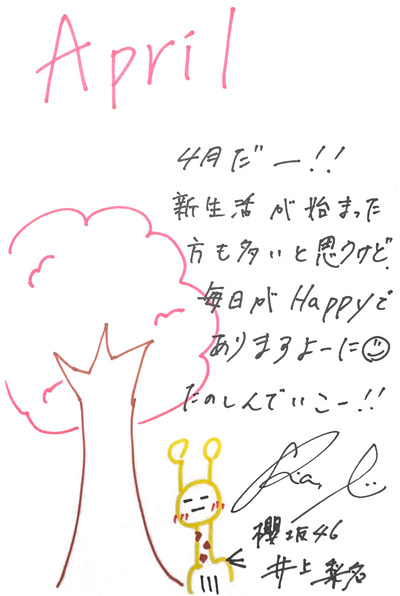 April
4月だー!!
新生活が始まった
方も多いと思うけど、
毎日がHappyで
ありますよーに☺
たのしんでいこー!!
櫻坂46
井上梨名